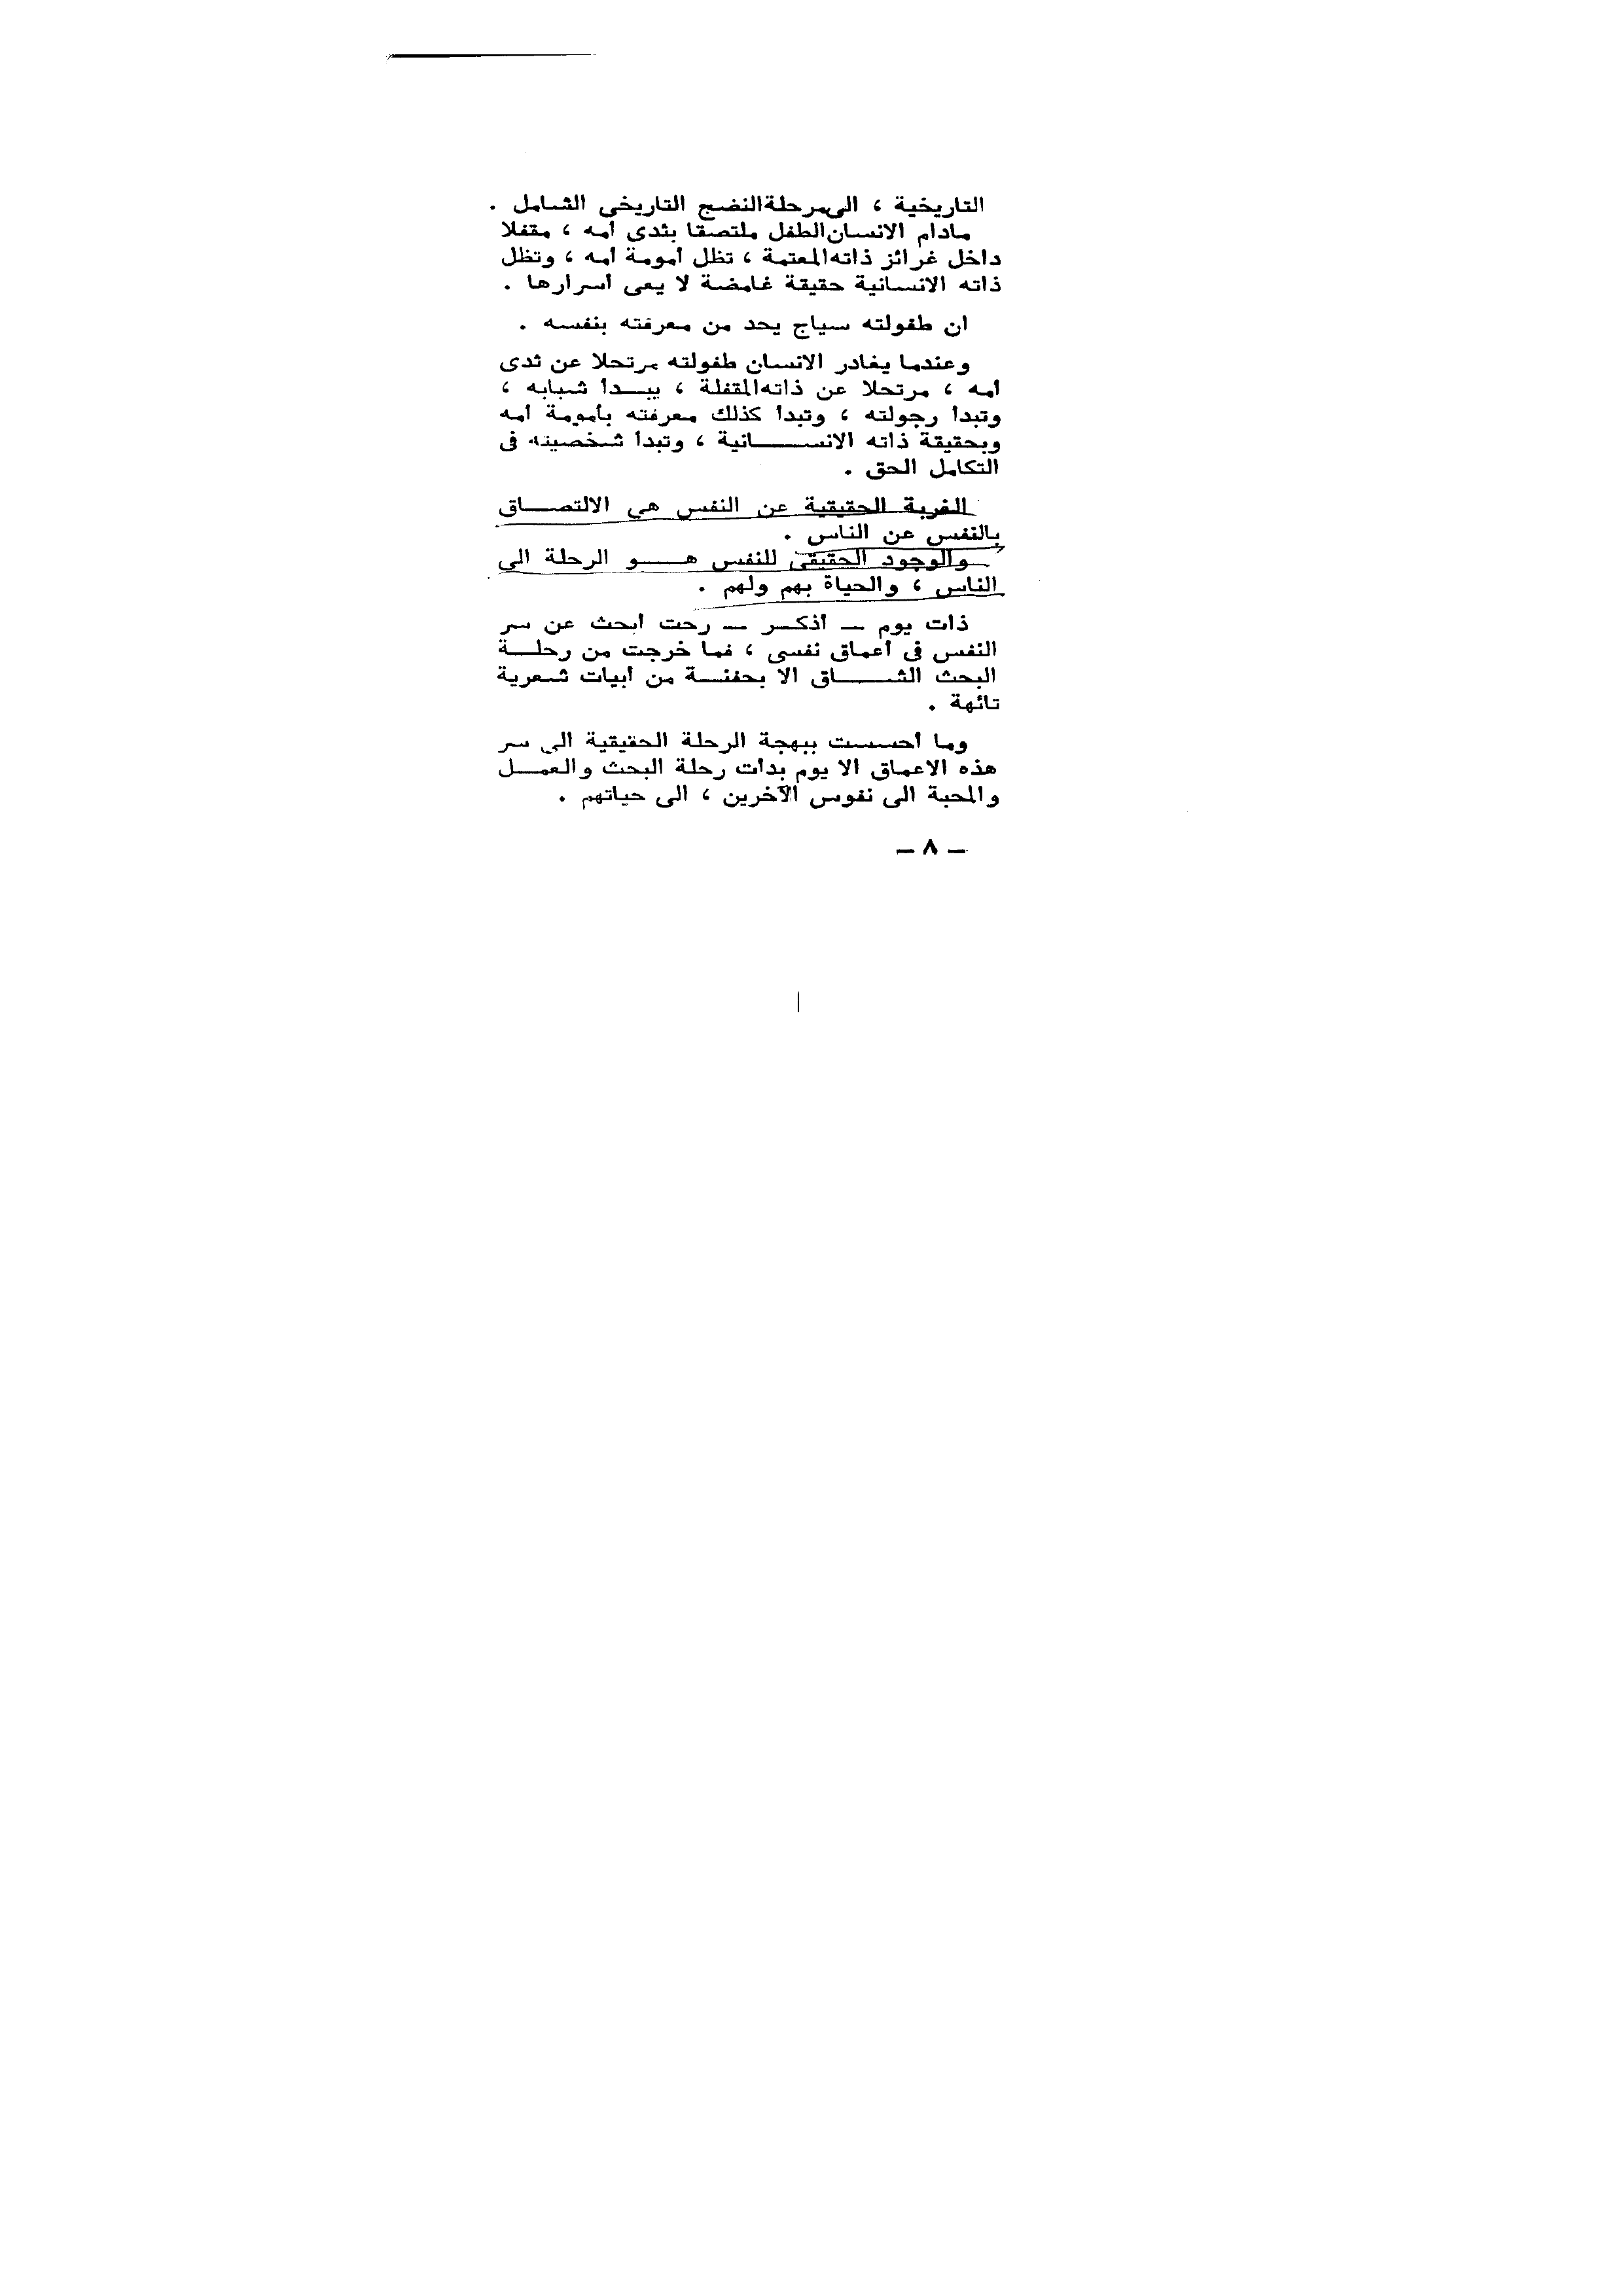 التاريخية ، الى مرحلة النضج التاريخى الشامل .
مادام الانسان الطفل ملتصقا بثدى أمه ، مقفلا
داخل غرائز ذاته المعتمة ، تظل أمومة أمه ، وتظل
ذاته الانسانية حقيقة غامضة لا يعى أسرارها .
ان طفولته سياج يحد من معرفته بنفسه .
وعندما يغادر الانسان طفولته مرتحلا عن ثدى
أمه ، مرتحلا عن ذاته المقفلة ، يبــدأ شبابه ،
وتبدأ رجولته ، وتبدأ كذلك معرفته بأمومة أمه
وبحقيقة ذاته الانســـــانية ، وتبدأ شخصيته فى
التكامل الحق .
الغربة الحقيقية عن النفس هى الالتصـــاق
بالنفس عن الناس .
والوجود الحقيقى للنفس هــــو الرحلة الى
الناس ، والحياة بهم ولهم .
ذات يوم — أذكــر — رحت أبحث عن سر
النفس فى أعماق نفسى ، فما خرجت من رحلــة
البحث الشـــــاق الا بحفنــة من أبيات شعرية
تائهة .
وما أحسست ببهجة الرحلة الحقيقية الى سر
هذه الاعماق الا يوم بدأت رحلة البحث والعمــل
والمحبة الى نفوس الآخرين ، الى حياتهم .
— ٨ —